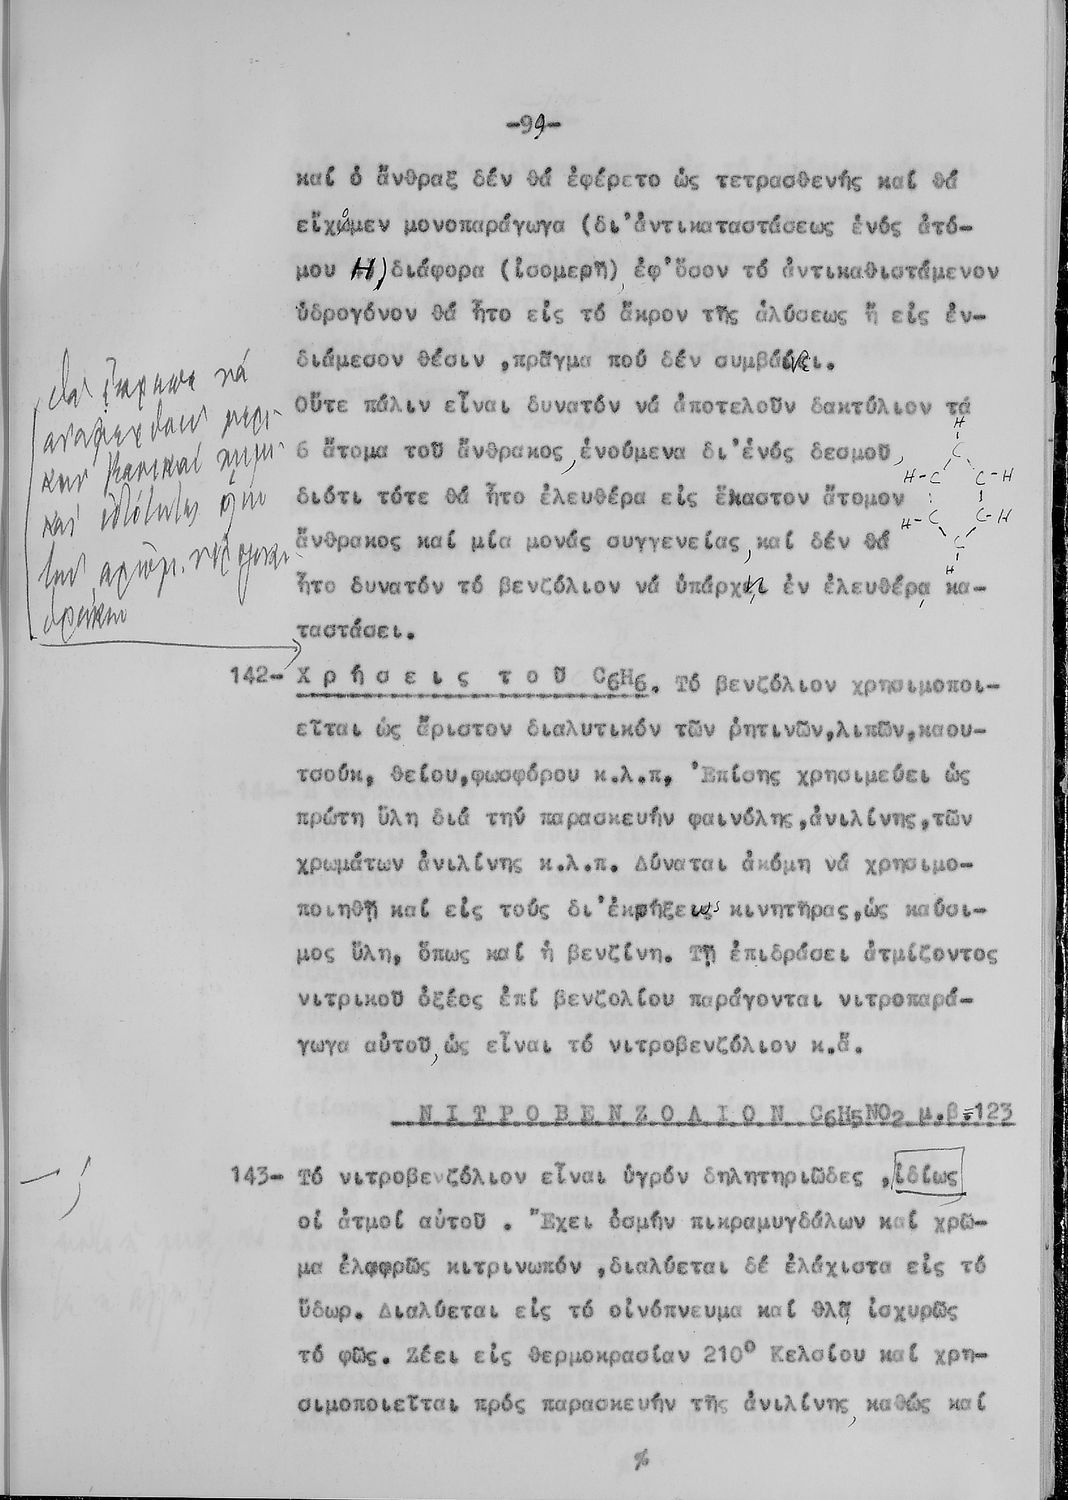 -99-
καί ὁ ἄνθραξ δέν θά ἐφέρετο ὡς τετρασθενής καί θά
εἴχομεν μονοπαράγωγα (δι'ἀντικαταστάσεως ἑνός ἀτό-
μου H)διάφορα (ἰσομερῆ), ἐφ'ὅσον τό ἀντικαθιστάμενον
ὑδρογόνον θά ἦτο εἰς τό ἄκρον τῆς ἁλύσεως ἤ εἰς ἐν-
διάμεσον θέσιν ,πρᾶγμα πού δέν συμβαίνει.
Οὔτε πάλιν εἶναι δυνατόν νά ἀποτελοῦν δακτύλιον τά
6 ἄτομα τοῦ ἄνθρακος,ἑνούμενα δι'ἑνός δεσμοῦ,
διότι τότε θά ἦτο ἐλευθέρα εἰς ἕκαστον ἄτομον
ἄνθρακος καί μία μονάς συγγενείας,καί δέν θά
ἦτο δυνατόν τό βενζόλιον νά ὑπάρχῃ ἐν ἐλευθέρᾳ κα-
ταστάσει.
H
C
H-C C-H
H-C C-H
C
H
θα ἔπρεπε νά
142- Χ ρ ή σ ε ι ς τ ο ῦ C6H6. Τό βενζόλιον χρησιμοποι-
εῖται ὡς ἄριστον διαλυτικόν τῶν ῥητινῶν,λιπῶν,καου-
τσούκ, θείου,φωσφόρου κ.λ.π, Ἐπίσης χρησιμεύει ὡς
πρώτη ὕλη διά τήν παρασκευήν φαινόλης,ἀνιλίνης,τῶν
χρωμάτων ἀνιλίνης κ.λ.π. Δύναται ἀκόμη νά χρησιμο-
ποιηθῇ καί εἰς τούς δι'ἐκρήξεως κινητῆρας,ὡς καύσι-
μος ὕλη, ὅπως καί ἡ βενζίνη. Τῇ ἐπιδράσει ἀτμίζοντος
νιτρικοῦ ὀξέος ἐπί βενζολίου παράγονται νιτροπαρά-
γωγα αὐτοῦ,ὡς εἶναι τό νιτροβενζόλιον κ.ἄ.
Ν Ι Τ Ρ Ο Β Ε Ν Ζ Ο Λ Ι Ο Ν C6H5NO2 μ.β=123
143- Τό νιτροβενζόλιον εἶναι ὑγρόν δηλητηριῶδες ,ἰδίως
οἱ ἀτμοί αὐτοῦ . Ἔχει ὀσμήν πικραμυγδάλων καί χρῶ-
μα ἐλαφρῶς κιτρινωπόν ,διαλύεται δέ ἐλάχιστα εἰς τό
ὕδωρ. Διαλύεται εἰς τό οἰνόπνευμα καί θλᾷ ἰσχυρῶς
τό φῶς. Ζέει εἰς θερμοκρασίαν 210° Κελσίου καί χρη-
σιμοποιεῖται πρός παρασκευήν τῆς ἀνιλίνης, καθώς καί